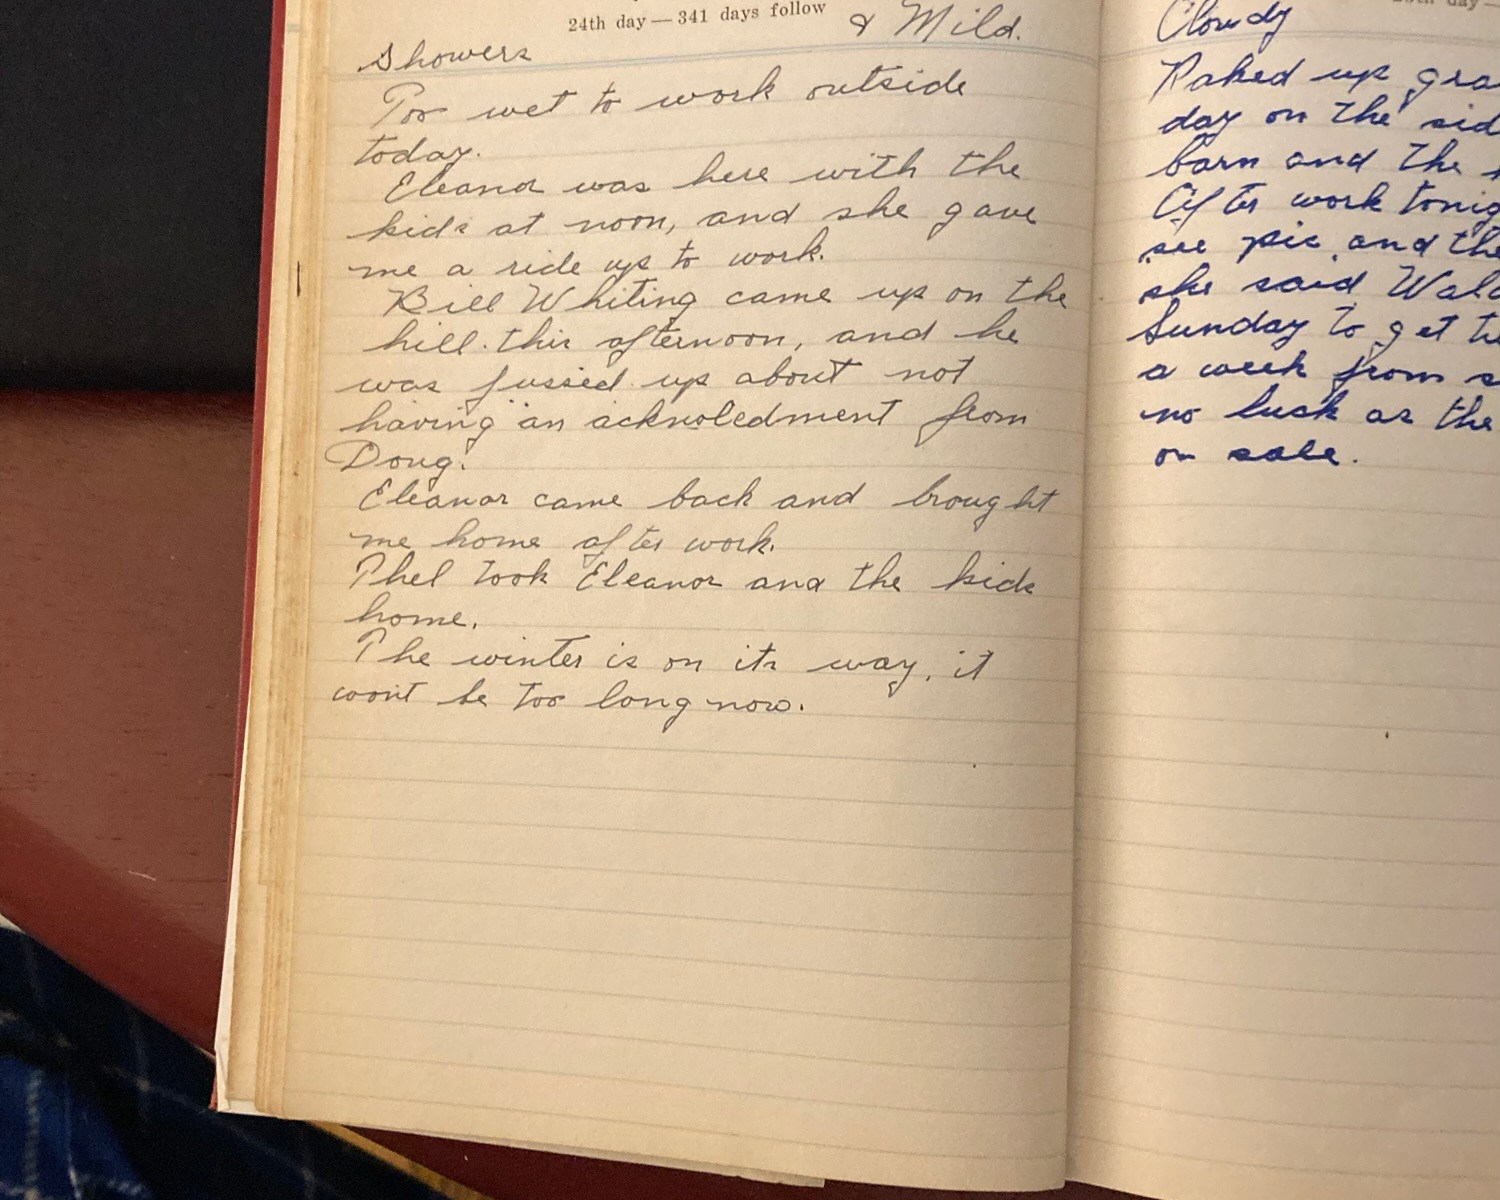 24th day — 341 days follow
Showers & Mild.
Too wet to work outside
today.
Eleanor was here with the
kids at noon, and she gave
me a ride up to work.
Bill Whiting came up on the
hill this afternoon, and he
was fussed up about not
having an acknoledment from
Doug.
Eleanor came back and brought
me home after work.
Phel took Eleanor and the kids
home.
The winter is on its way, it
wont be too long now.
day —
Cloudy
Raked up
day on the
barn and the
After work
see pic and
she said
Sunday to get
a week from
no luck as the
on sale.